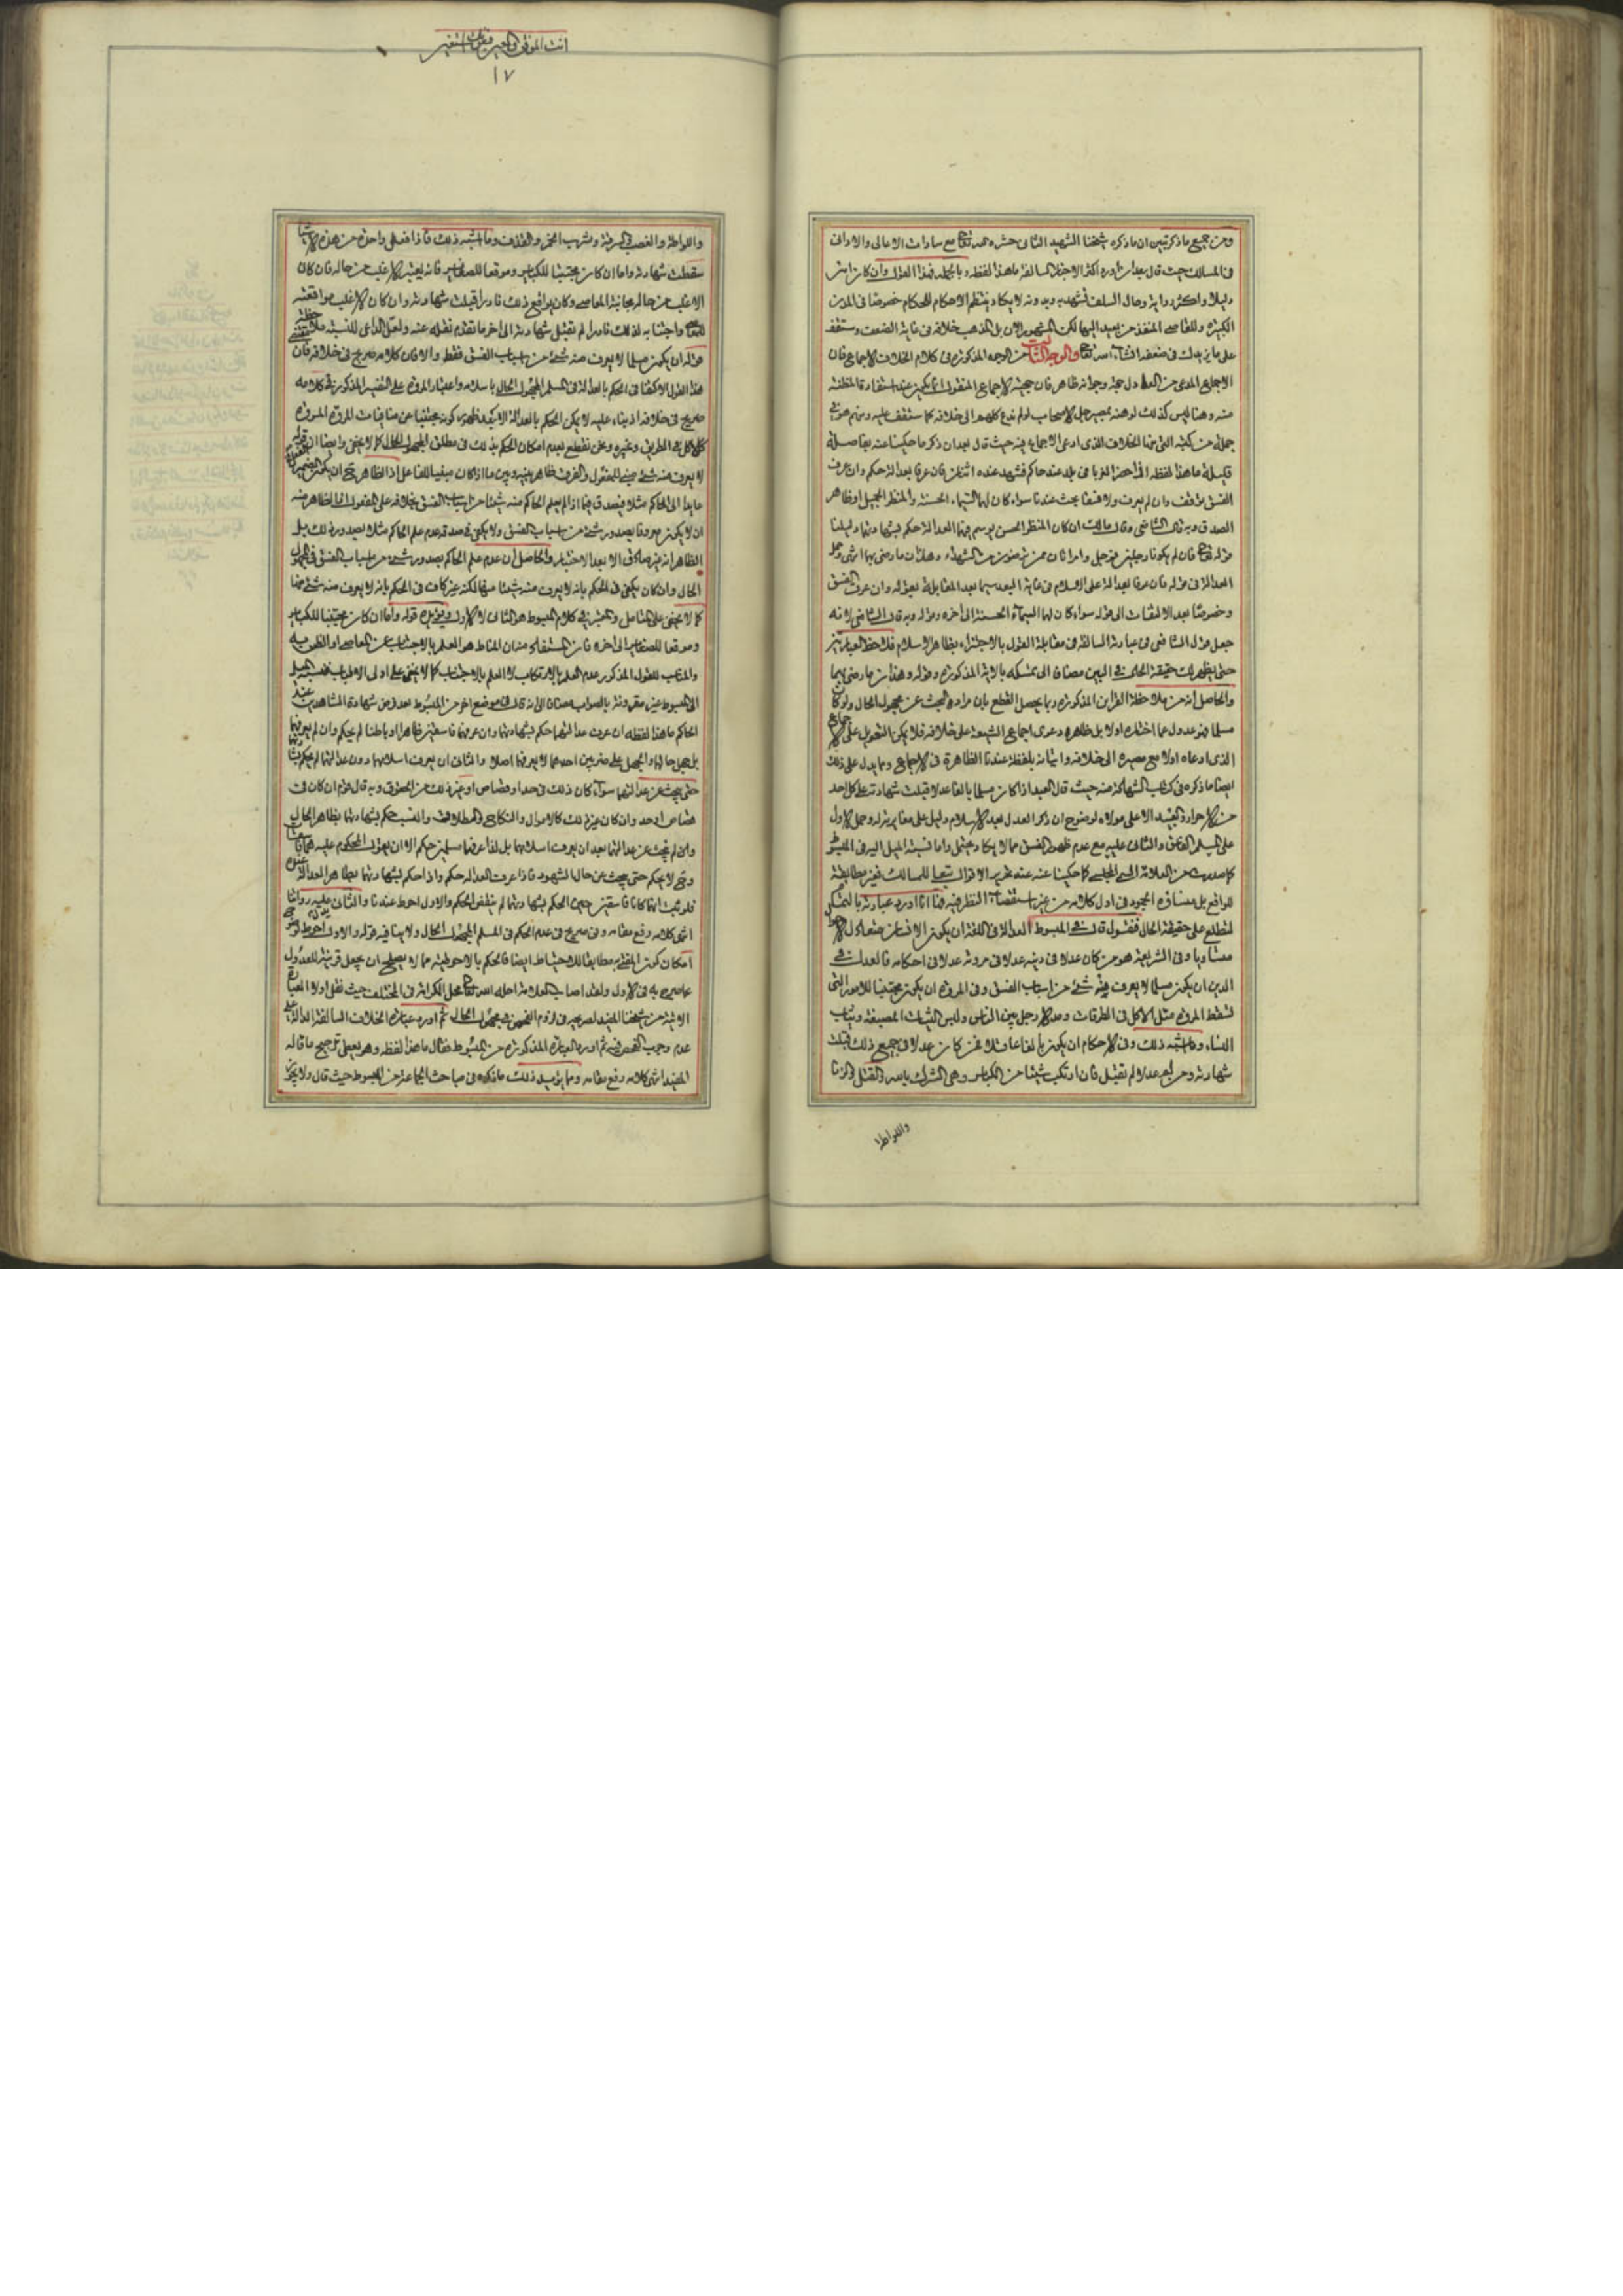 ومن جميع ما ذكر تبين ان ما ذكره شيخنا الشهيد الثاني حشره الله تعالى مع سادات الاعالي والاداني
في المسالك حيث قال بعد ان اورد اكثر الاخبار السالفة ما هذا لفظه وبالجملة فهذا القول وان كان ابين
دليلا واكثر رواية وحال السلف تشهد به وبدونه لا يكاد ينتظم الاحكام للحكام خصوصا في المدن
الكبيرة والقاضي المنفذ من بعيد اليها لكن المشهور الان بل المذهب خلافه في غاية الضعف وستقف
على ما يزيدك في ضعفه انشاء الله تعالى والوجه الثالث من الوجوه المذكورة في كلام الخلاف الاجماع فان
الاجماع المدعى من العلماء دليل حجة وجوابه ظاهر فان حجية الاجماع المنقول انما يكون عند استفادة المظنة
منه وهنا ليس كذلك لوهنه بمصير جل الاصحاب لو لم ندع كلهم الى خلافه كما ستقف عليه ومنهم هو في
جملة من كتبه التي منها الخلاف الذي ادعى الاجماع فيه حيث قال بعد ان ذكر ما حكينا منه بفاصلة
قليلة ما هذا لفظه اذا حضر الغرباء في بلد عند حاكم فشهد عنده اثنان فان عرفا بعدالة حكم وان عرف
الفسق وقف وان لم يعرف ولا فسقا بحث عندنا سواء كان لهما السيماء الحسنة والمنظر الجميل او ظاهر
الصدق وبه قال الشافعي وقال مالك ان كان المنظر الحسن توسم فيهما العدالة حكم بشهادتهما دليلنا
قوله تعالى فان لم يكونا رجلين فرجل وامراتان ممن ترضون من الشهداء وهذان ما رضي بهما انتهى وحمل
العدالة في قوله فان عرفا بعدالة على الاسلام في غاية البعد سيما بعد المقابلة بقوله وان عرف الفسق
وخصوصا بعد الالتفات الى قوله سواء كان لهما السيماء الحسنة الى اخره وقوله وبه قال الشافعي لانه
جعل قول الشافعي في عبارته السالفة في مقابلة القول بالاجتزاء بظاهر الاسلام فلاحظ العبارتين
حتى يظهر لك حقيقة الحال في البين مضافا الى تمسكه بالاية المذكورة وقوله وهذان ما رضي بهما
والحاصل انه من ملاحظة القراين المذكورة ربما يحصل القطع بان مراده البحث عن مجهول الحال ولو كان
مسلما فهو عدول عما اختاره اولا بل ظاهره دعوى اجماع الشيعة على خلافه فلا يمكن التعويل على الاجماع
الذي ادعاه اولا مع مصيره الى خلافه واتيانه بلفظة عندنا الظاهرة في الاجماع ومما يدل على ذلك
ايضا ما ذكره في كتاب الشهادة منه حيث قال العبد اذا كان مسلما بالغا عدلا قبلت شهادته على كل احد
من الاحرار والعبيد الا على مولاه لوضوح ان ذكر العدل بعد الاسلام دليل على مغايرته له وحمل الاول
على المسلم الفاسق والثاني عليه مع عدم ظهور الفسق مما لا يكاد يحتمل واما نسبة الميل اليه في المبسوط
كما صدرت من العلامة السمي المجلسي كما حكينا عنه عند تحرير الاقوال تبعا للمسالك فغير مطابقة
للواقع بل منشاؤه الجمود في اول كلامه من غير استقصاء النظر فيه فها انا اورد عبارته بالتمام
لتطلع على حقيقة الحال فنقول قال في المبسوط العدالة في اللغة ان يكون الانسان متعادل الاحوال
متساويا وفي الشريعة هو من كان عدلا في دينه عدلا في مروته عدلا في احكامه فالعدل في
الدين ان يكون مسلما لا يعرف منه شئ من اسباب الفسق وفي المروة ان يكون مجتنبا للامور التي
تسقط المروة مثل الاكل في الطرقات ومد الارجل بين الناس ولبس الثياب المصبغة وثياب
النساء وما اشبه ذلك وفي الاحكام ان يكون بالغا عاقلا فمن كان عدلا في جميع ذلك قبلت
شهادته ومن لم يكن عدلا لم تقبل فان ارتكب شيئا من الكباير وهي الشرك بالله والقتل والزنا
واللواطة
انت الموفق والمعين
١٧
واللواطة والغصب والسرقة وشرب الخمر والقذف وما اشبه ذلك فاذا فعل واحدة من هذه الاشياء
سقطت شهادته واما ان كان مجتنبا للكباير وموقعا للصغاير فانه يعتبر الاغلب من حاله فان كان
الاغلب من حاله مجانبة المعاصي وكان يواقع ذلك نادرا قبلت شهادته وان كان الاغلب مواقعته
للمعاصي واجتنابه لذلك نادرا لم تقبل شهادته الى اخر ما تقدم نقله عنه ولعل الداعي للنسبة ملاحظة
قوله ان يكون مسلما لا يعرف منه شئ من اسباب الفسق فقط والا فان كلامه صريح في خلافه فان
هذا القول الاكتفاء في الحكم بالعدالة في المسلم المجهول الحال باسلامه واعتبار المروة على التفسير المذكور في كلامه
صريح في خلافه اذ بناء عليه لا يمكن الحكم بالعدالة الا بعد ظهور كونه مجتنبا عن منافيات المروة المعروفة
كالاكل في الطريق وغيره ونحن نقطع بعدم امكان الحكم بذلك في مطلق المجهول الحال كما لا يخفى وايضا ان قوله
لا يعرف منه شئ مبني للمفعول والفرق ظاهر بينه وبين ما اذا كان مبنيا للفاعل اذ الظاهر ح ان يكون الضمير
عايدا الى الحاكم مثلا فيصدق فيما اذا لم يعلم الحاكم منه شيئا من اسباب الفسق بخلافه على المفعول انما الظاهر منه
ان لا يكون معروفا بصدور شئ من اسباب الفسق ولا يكفي في صدقه عدم علم الحاكم مثلا بصدور ذلك بل
الظاهر انه غير صادق الا بعد الاختبار والحاصل ان عدم علم الحاكم بصدور شئ من اسباب الفسق في المجهول
الحال وان كان يكفي في الحكم بانه لا يعرف منه شيئا منها لكنه غير كاف في الحكم بانه لا يعرف منه شئ منها
كما لا يخفى على المتامل والمعتبر في كلام المبسوط هو الثاني لا الاول ويؤيده قوله واما ان كان مجتنبا للكباير
وموقعا للصغاير الى اخره فان المستفاد منه ان المناط هو العلم بالاجتناب عن المعاصي او الظن به
والمناسب للقول المذكور عدم العلم بالارتكاب لا العلم بالاجتناب كما لا يخفى على اولى الالباب فنسبة الميل
الى المبسوط غير مقرونة بالصواب مضافا الى انه قال في موضع اخر من المبسوط بعد فرض شهادة الشاهدين عند
الحاكم ما هذا لفظه ان عرف عدالتهما حكم بشهادتهما وان عرفهما فاسقين ظاهرا او باطنا لم يحكم وان لم يعرفهما
بل جهل حالهما والجهل على ضربين احدهما لا يعرفهما اصلا والثاني ان يعرف اسلامهما دون عدالتهما لم يحكم بشهادتهما
حتى يبحث عن عدالتهما سواء كان ذلك في حد او قصاص او غير ذلك من الحقوق وبه قال قوم ان كان في
قصاص او حد وان كان غير ذلك كالاموال والنكاح والطلاق والنسب حكم بشهادتهما بظاهر الحال
ولم يبحث عن عدالتهما بعد ان يعرف اسلامهما بل اذا عرفهما مسلمين حكم الا ان يقول المحكوم عليه هما فاسقان
وح لا يحكم حتى يبحث عن حال الشهود فاذا عرف العدالة حكم واذا حكم بشهادتهما بظاهر العدالة عنده
فلو ثبت انهما كانا فاسقين حين الحكم بشهادتهما لم ينقض الحكم والاول احوط عندنا والثاني عليه رواياتنا
انتهى كلامه رفع مقامه وهو صريح في عدم الحكم في المسلم المجهول الحال ولا ينافيه قوله والاول احوط
امكان كون المفتى به مطابقا للاحتياط ايضا فالحكم بالاحوطية مما لا يصلح ان يجعل قرينة للعدول
عما صرح به في الاول ولقد اصاب العلامة احله الله تعالى محل الكرامة في المختلف حيث نقل اولا العبارة
الاتية من شيخنا المفيد الصريحة في لزوم الفحص في مجهول الحال ثم اورد عبارة الخلاف السالفة الدالة على
عدم وجوب الفحص فيه ثم اورد العبارة المذكورة من المبسوط فقال ما هذا لفظه وهو يعطي ترجيح ما قاله
المفيد انتهى كلامه رفع مقامه ومما يؤيد ذلك ما ذكره في مباحث الجماعة من المبسوط حيث قال ولا يجوز